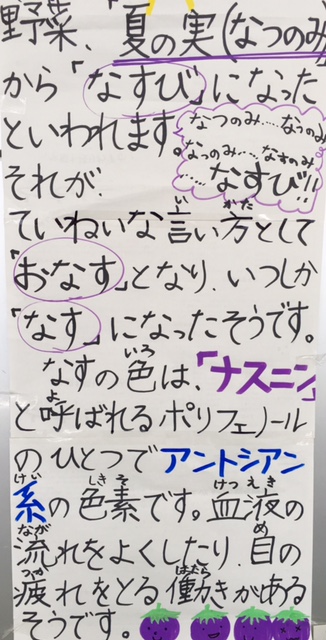 野菜、「夏の実(なつのみ)
から「なすび」になった
といわれます。
なつのみ……なつのみ
なつのみ…なすのみ
……なすび!!
それが、
ていねいな言い方として
い かた
「おなす」となり、いつしか
「なす」になったそうです。
いろ
なすの色は、「ナスニン」
よ
と呼ばれるポリフェノール
のひとつでアントシアン
けい しき そ けつ えき
系の色素です。血液の
なが め
流れをよくしたり、目の
つか はたら
疲れをとる働きがある
そうです。